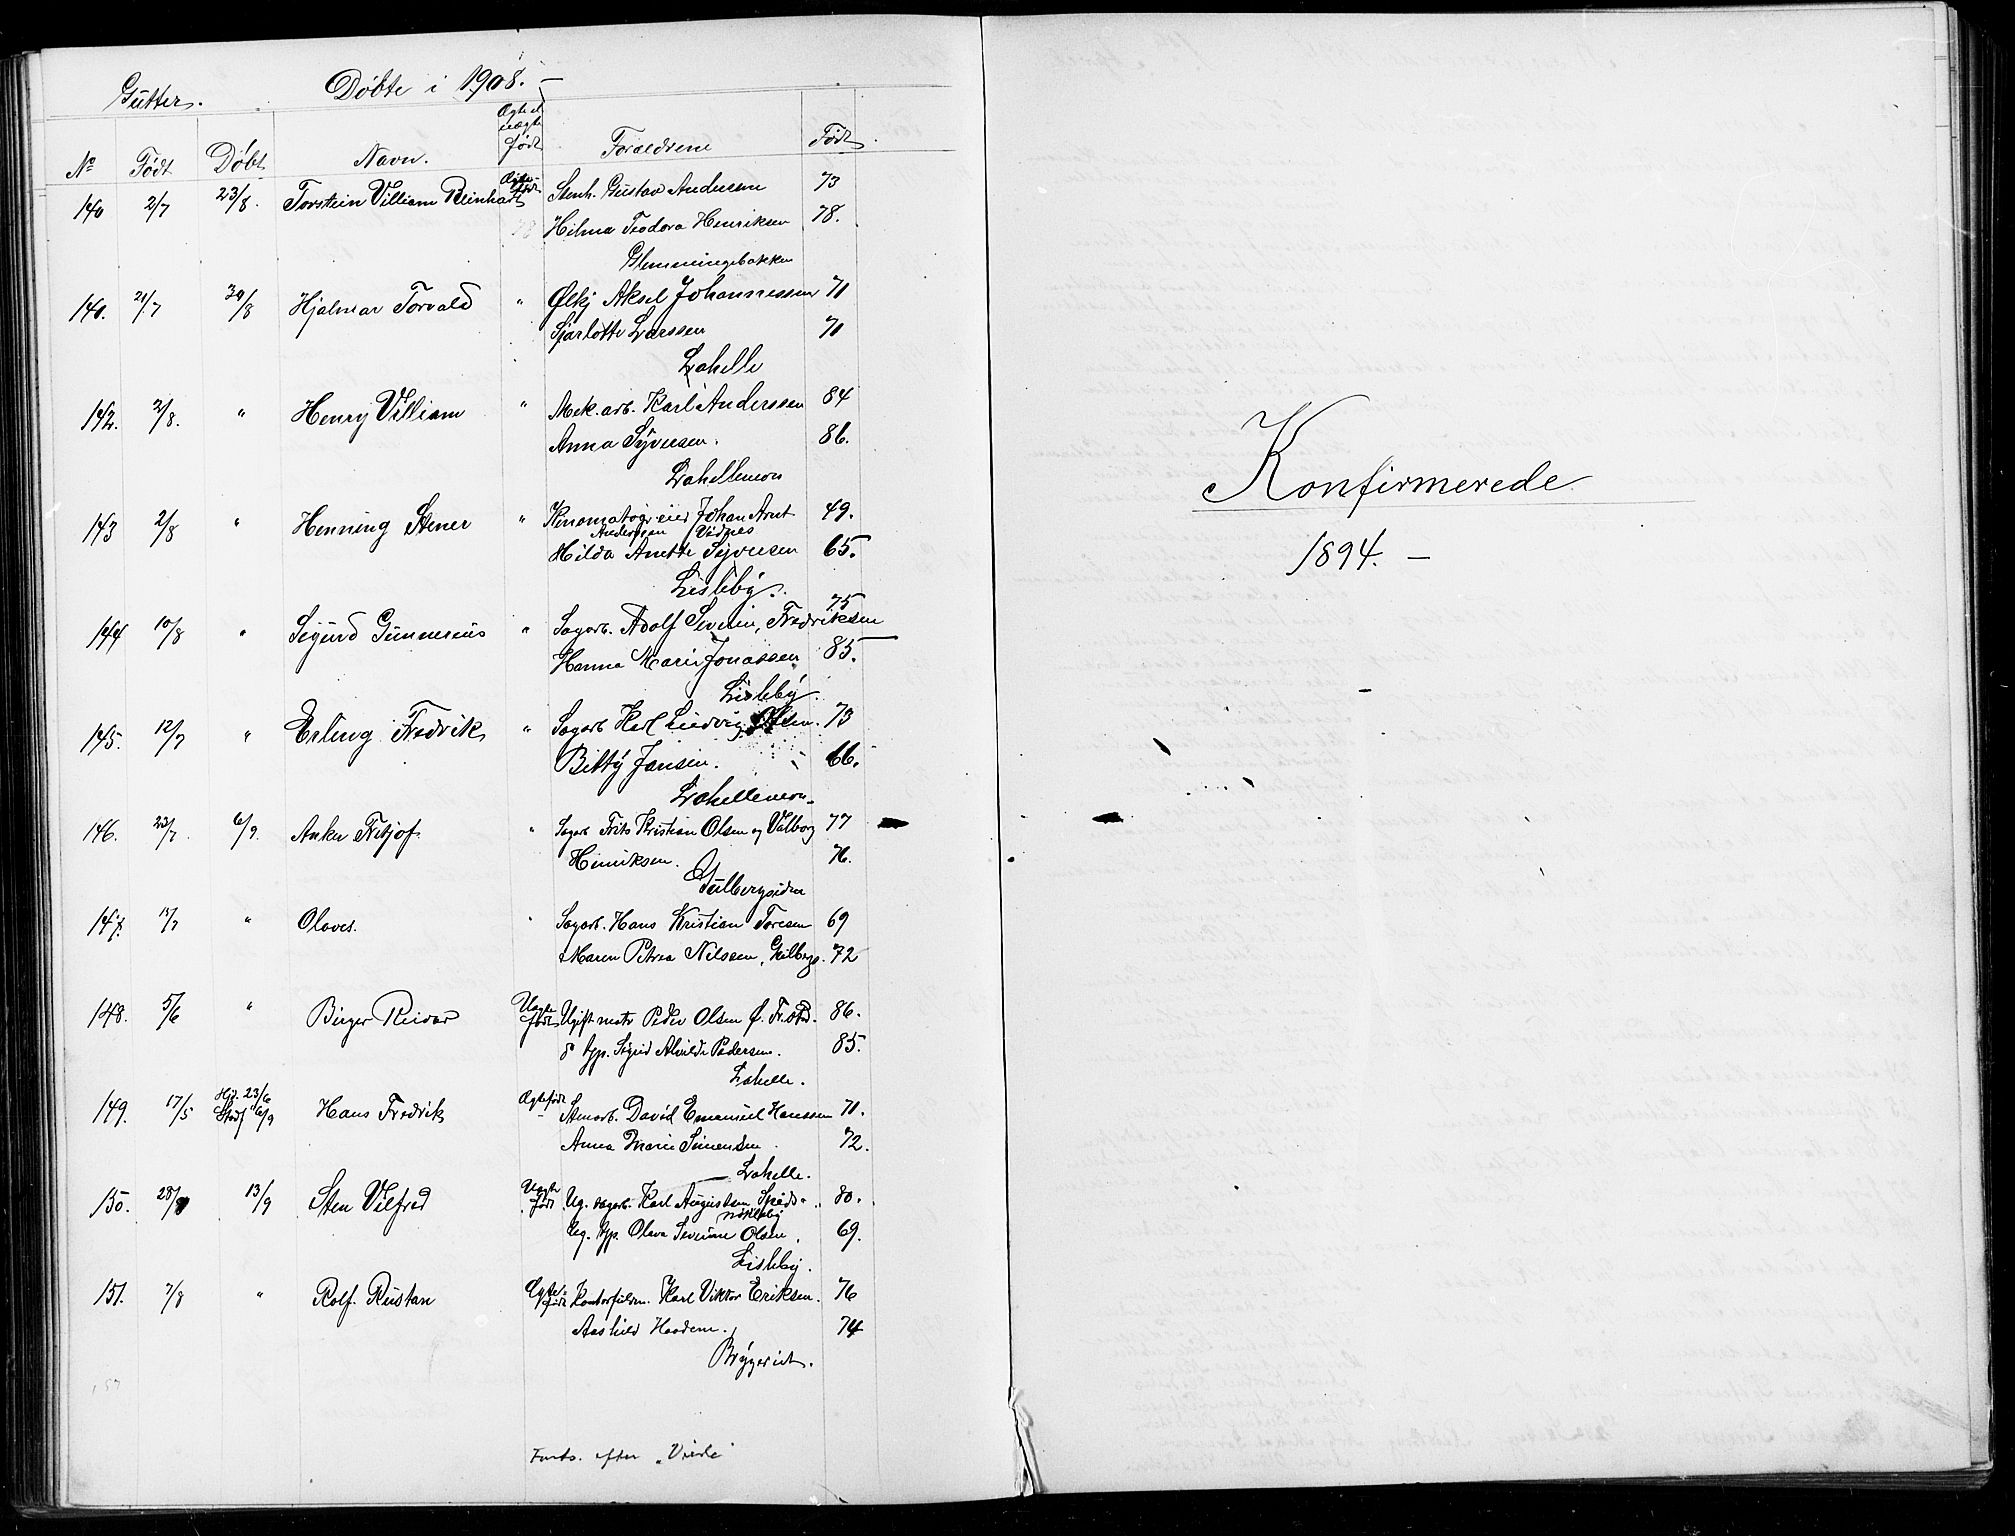 Gutter. Døbte i 1908. —
No Født Døbt Navn. Ægte el. uægte født Forældrene Født
140 2/7 23/8. Torstein Villiam Reinhart Ægtefødt Stenh. Gustav Andersen 73
Hilma Teodora Henriksen 78.
Glemmingebakken
140. 21/7 30/8 Hjalmar Torvald " Ølkj Aksel Johannessen 71
Sjarlotte Larssen 71
Lahelle
142. 2/8. " Henry Villiam " Mek. arb. Karl Anderssen 84
Anna Syversen. 86.
Lahellemoen
143 2/8 " Henning Stener " Kinomatogr.eier Johan Arnt 49.
Anderssen Vidnes
Hilda Anette Syversen 65.
Lisleby.
144 10/8 " Sigurd Gunnerius " Sagarb. Adolf Severin Fredriksen 75
Hanna Marie Jonassen 85.
Lisleby.
145. 12/7 " Erling Fredrik " Sagarb Karl Ludvig Olsen. 73
Betty Jansen. 66.
Lahellemoen
146. 23/7 6/9. Anker Fritjof. " Sagarb Frits Kristian Olsen og Valborg 77
Henriksen. 76.
Gulbergsiden
147. 11/7 " Olaves. " Sagarb. Hans Kristian Toresen 69
Maren Petrea Nilssen, Gulbergs. 72
148. 5/6 " Birger Reidar Uægte født Ugift matr Peder Olsen Ø. Fr.stad. 86.
& tjp. Sigrid Alvilde Pedersen. 85.
Lahelle.
149. 17/5 Hjd. 23/6 Stadf 6/9 Hans Fredrik Ægtefødt Stenarb. David Emanuel Hanssen 71.
Anna Marie Simensen 72.
Lahelle.
150. 28/7 13/9 Sten Vilfred Uægte født Ug. sagarb. Karl Augustsen, Spids- 80.
nökleby
Ug. tjp. Olava Severine Olsen. 69.
Lisleby.
151. 7/8 " Rolf Rustan Ægtefødt Kontorfuldm. Karl Viktor Eriksen. 76
Aashild Haadem. 74
Bryggeriet.
Forts. efter "Viede"
Konfirmerede
1894. —